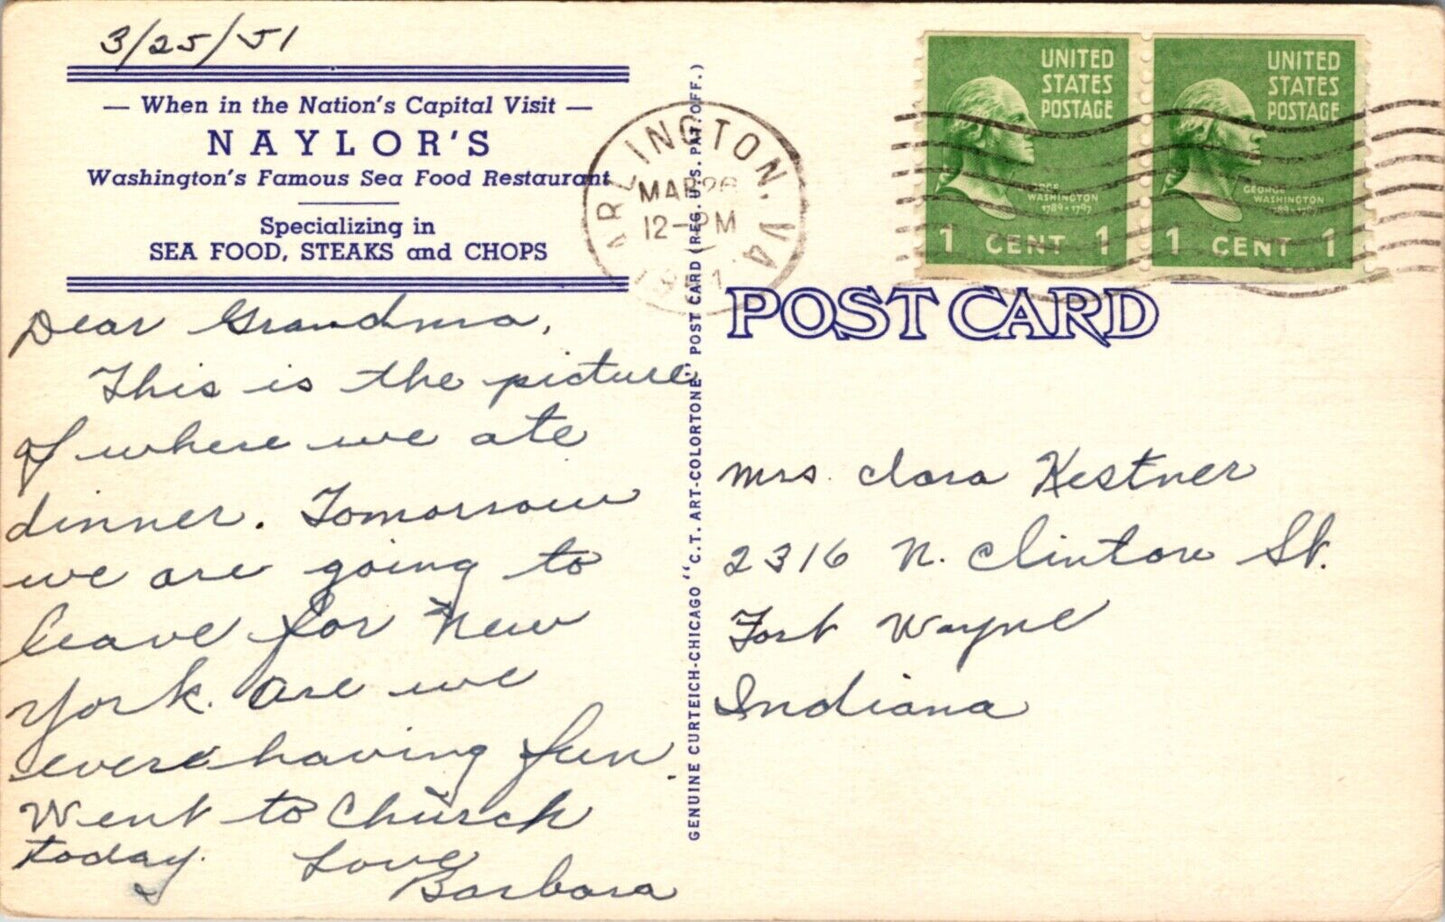 3/25/51
— When in the Nation's Capital Visit —
NAYLOR'S
Washington's Famous Sea Food Restaurant
Specializing in
SEA FOOD, STEAKS and CHOPS
Dear Grandma,
This is the picture
of where we ate
dinner. Tomorrow
we are going to
leave for New
York. Are we
ever having fun.
Went to Church
today.
Love
Barbara
GENUINE CURTEICH-CHICAGO "C.T. ART-COLORTONE" POST CARD (REG. U.S. PAT. OFF.)
ARLINGTON, VA
MAR 26
12-PM
1951
UNITED
STATES
POSTAGE
GEORGE
WASHINGTON
1789-1797
1 CENT 1
UNITED
STATES
POSTAGE
GEORGE
WASHINGTON
1789-1797
1 CENT 1
POST CARD
Mrs. Clara Kestner
2316 N. Clinton St.
Fort Wayne
Indiana